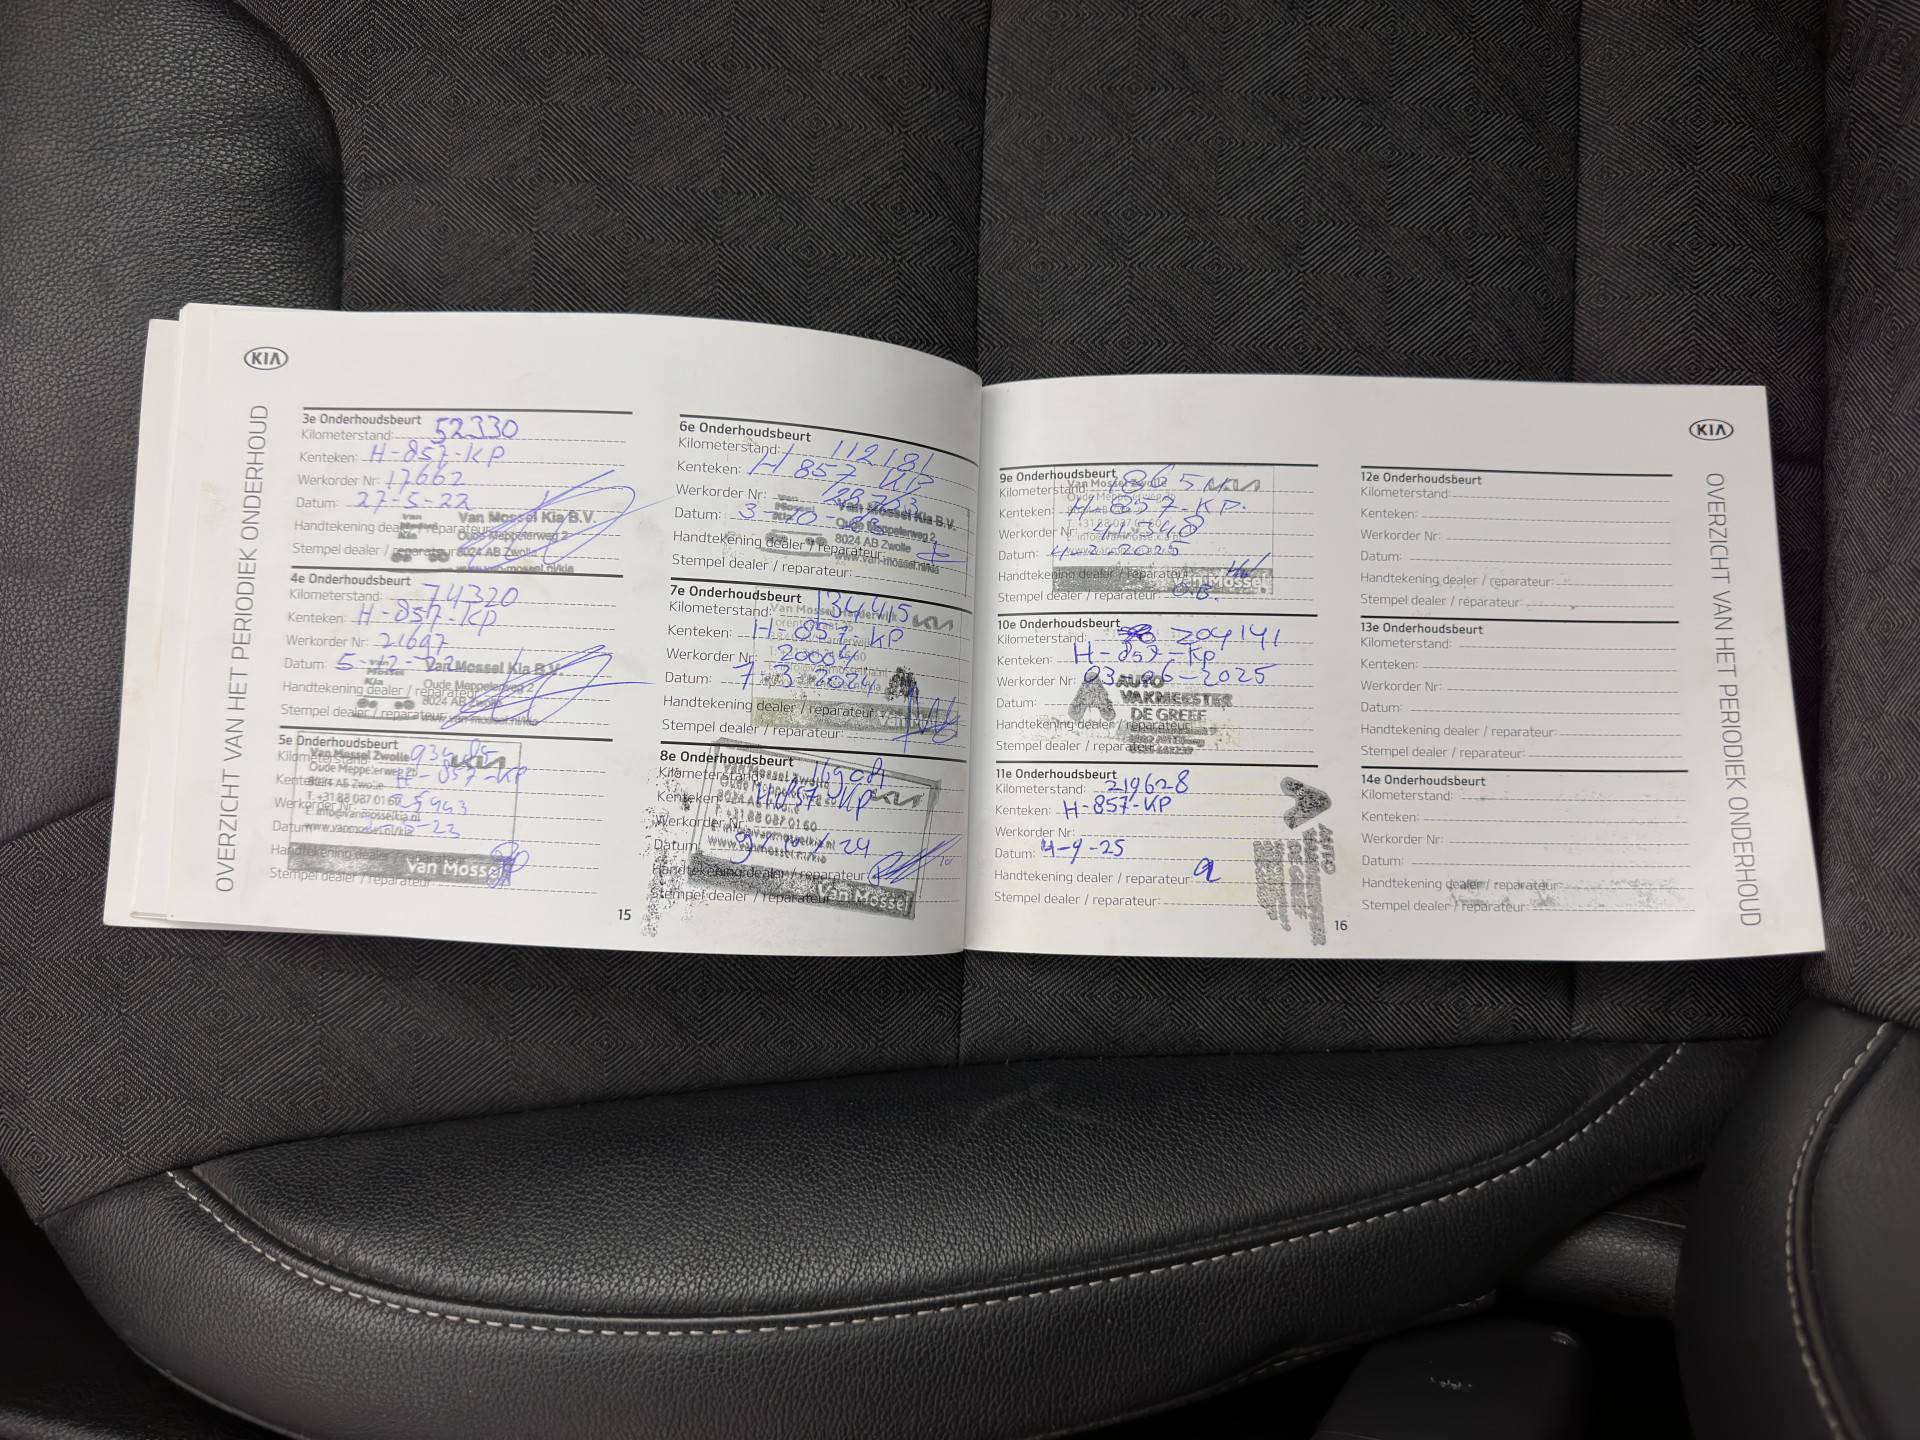 KIA
OVERZICHT VAN HET PERIODIEK ONDERHOUD
3e Onderhoudsbeurt
Kilometerstand: 52330
Kenteken: H-857-KP
Werkorder Nr: 17662
Datum: 27-5-22
Handtekening dealer / reparateur:
Stempel dealer / reparateur:
Van Mossel Kia B.V.
Oude Meppelerweg 2
8024 AB Zwolle
www.van-mossel.nl/kia
4e Onderhoudsbeurt
Kilometerstand: 74320
Kenteken: H-857-KP
Werkorder Nr: 21697
Datum: 5-12-22
Handtekening dealer / reparateur:
Stempel dealer / reparateur:
Van Mossel Kia B.V.
Oude Meppelerweg 2
8024 AB Zwolle
www.van-mossel.nl/kia
5e Onderhoudsbeurt
Kilometerstand:
Kenteken: H-857-KP
Werkorder Nr:
Datum:
Handtekening dealer / reparateur:
Stempel dealer / reparateur:
Van Mossel Zwolle
Oude Meppelerweg 2b
8024 AB Zwolle
T. +31 88 087 01 60
E. info@vanmosselkia.nl
www.vanmossel.nl/kia
KIA
Van Mossel
6e Onderhoudsbeurt
Kilometerstand: 112181
Kenteken: H 857 KP
Werkorder Nr:
Datum: 3-10-
Handtekening dealer / reparateur:
Stempel dealer / reparateur:
Van Mossel Kia B.V.
Oude Meppelerweg 2
8024 AB Zwolle
www.van-mossel.nl/kia
7e Onderhoudsbeurt
Kilometerstand: 134415
Kenteken: H-857-KP
Werkorder Nr: 20004
Datum: 7-3-2024
Handtekening dealer / reparateur:
Stempel dealer / reparateur:
Van Mossel Harderwijk
KIA
8e Onderhoudsbeurt
Kilometerstand:
Kenteken: H857 KP
Werkorder Nr:
Datum: 9/10/24
Handtekening dealer / reparateur:
Stempel dealer / reparateur:
Van Mossel Zwolle
Oude Meppelerweg 2b
8024 AB Zwolle
T. +31 88 087 01 60
E. info@vanmosselkia.nl
www.vanmossel.nl/kia
KIA
Van Mossel
15
9e Onderhoudsbeurt
Kilometerstand:
Kenteken: H-857-KP.
Werkorder Nr:
Datum:
Handtekening dealer / reparateur:
Stempel dealer / reparateur:
Van Mossel Zwolle
KIA
Van Mossel
10e Onderhoudsbeurt
Kilometerstand: 204141
Kenteken: H-857-KP
Werkorder Nr: 03-06-2025
Datum:
Handtekening dealer / reparateur:
Stempel dealer / reparateur:
AUTO
VAKMEESTER
DE GREEF
11e Onderhoudsbeurt
Kilometerstand: 219628
Kenteken: H-857-KP
Werkorder Nr:
Datum: 4-9-25
Handtekening dealer / reparateur:
Stempel dealer / reparateur:
AUTO
VAKMEESTER
DE GREEF
16
KIA
12e Onderhoudsbeurt
Kilometerstand:
Kenteken:
Werkorder Nr:
Datum:
Handtekening dealer / reparateur:
Stempel dealer / réparateur:
13e Onderhoudsbeurt
Kilometerstand:
Kenteken:
Werkorder Nr:
Datum:
Handtekening dealer / reparateur:
Stempel dealer / reparateur:
14e Onderhoudsbeurt
Kilometerstand:
Kenteken:
Werkorder Nr:
Datum:
Handtekening dealer / reparateur:
Stempel dealer / reparateur:
OVERZICHT VAN HET PERIODIEK ONDERHOUD